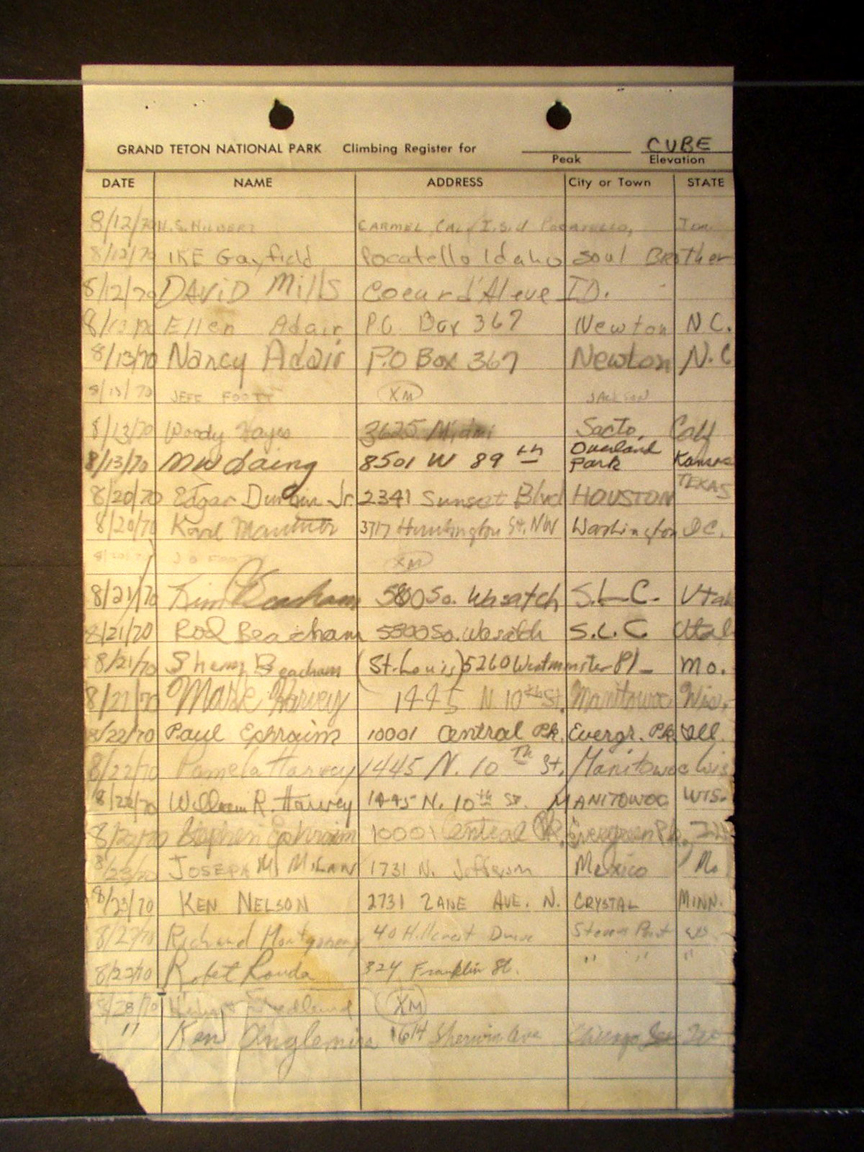 GRAND TETON NATIONAL PARK Climbing Register for CUBE
Peak Elevation
DATE NAME ADDRESS City or Town STATE
8/12/70 CARMEL, CAL
8/12/70 IKE Gayfield Pocatello Idaho Soul Brother
8/12/70 DAVID Mills Coeur d'Alene ID.
8/13/70 Ellen Adair P.O. Box 367 Newton N.C.
8/13/70 Nancy Adair P.O Box 367 Newton N.C
8/13/70 JEFF FOOTT XM JACKSON
8/13/70 Woody Hayes 3625 Sacto, Calif
8/13/70 8501 W 89th Overland Park Kansas
8/20/70 Edgar Jr. 2341 Sunset Blvd HOUSTON TEXAS
8/20/70 Karl 3717 Huntington St, NW Washington D.C.
XM
8/21/70 Kim Beacham 5800 So. Wasatch S.L.C. Utah
8/21/70 Rod Beacham 5800 So. Wasatch S.L.C Utah
8/21/70 Beacham (St. Louis) 5260 Westminster Pl Mo.
8/21/70 Mark Harvey 1445 N 10th St. Manitowoc Wis.
8/22/70 Paul Ephraim 10001 Central Pk. Evergr. Pk. Ill.
8/22/70 Pamela Harvey 1445 N. 10Th St. Manitowoc Wis
8/22/70 William R. Harvey 1445 N. 10th ST. MANITOWOC WIS.
8/22/70 Stephen Ephraim 10001 Central Pk. Evergreen Pk. Ill
8/23/70 JOSEPH M. 1731 N. Jefferson Mexico Mo.
8/23/70 KEN NELSON 2731 ZANE AVE. N. CRYSTAL MINN.
8/27/70 Richard Montgomery 40 Hillcrest Drive Stevens Point
8/27/70 324 Franklin St. " " " "
8/28/70 XM
" Ken 1614 Sherwin Ave Chicago